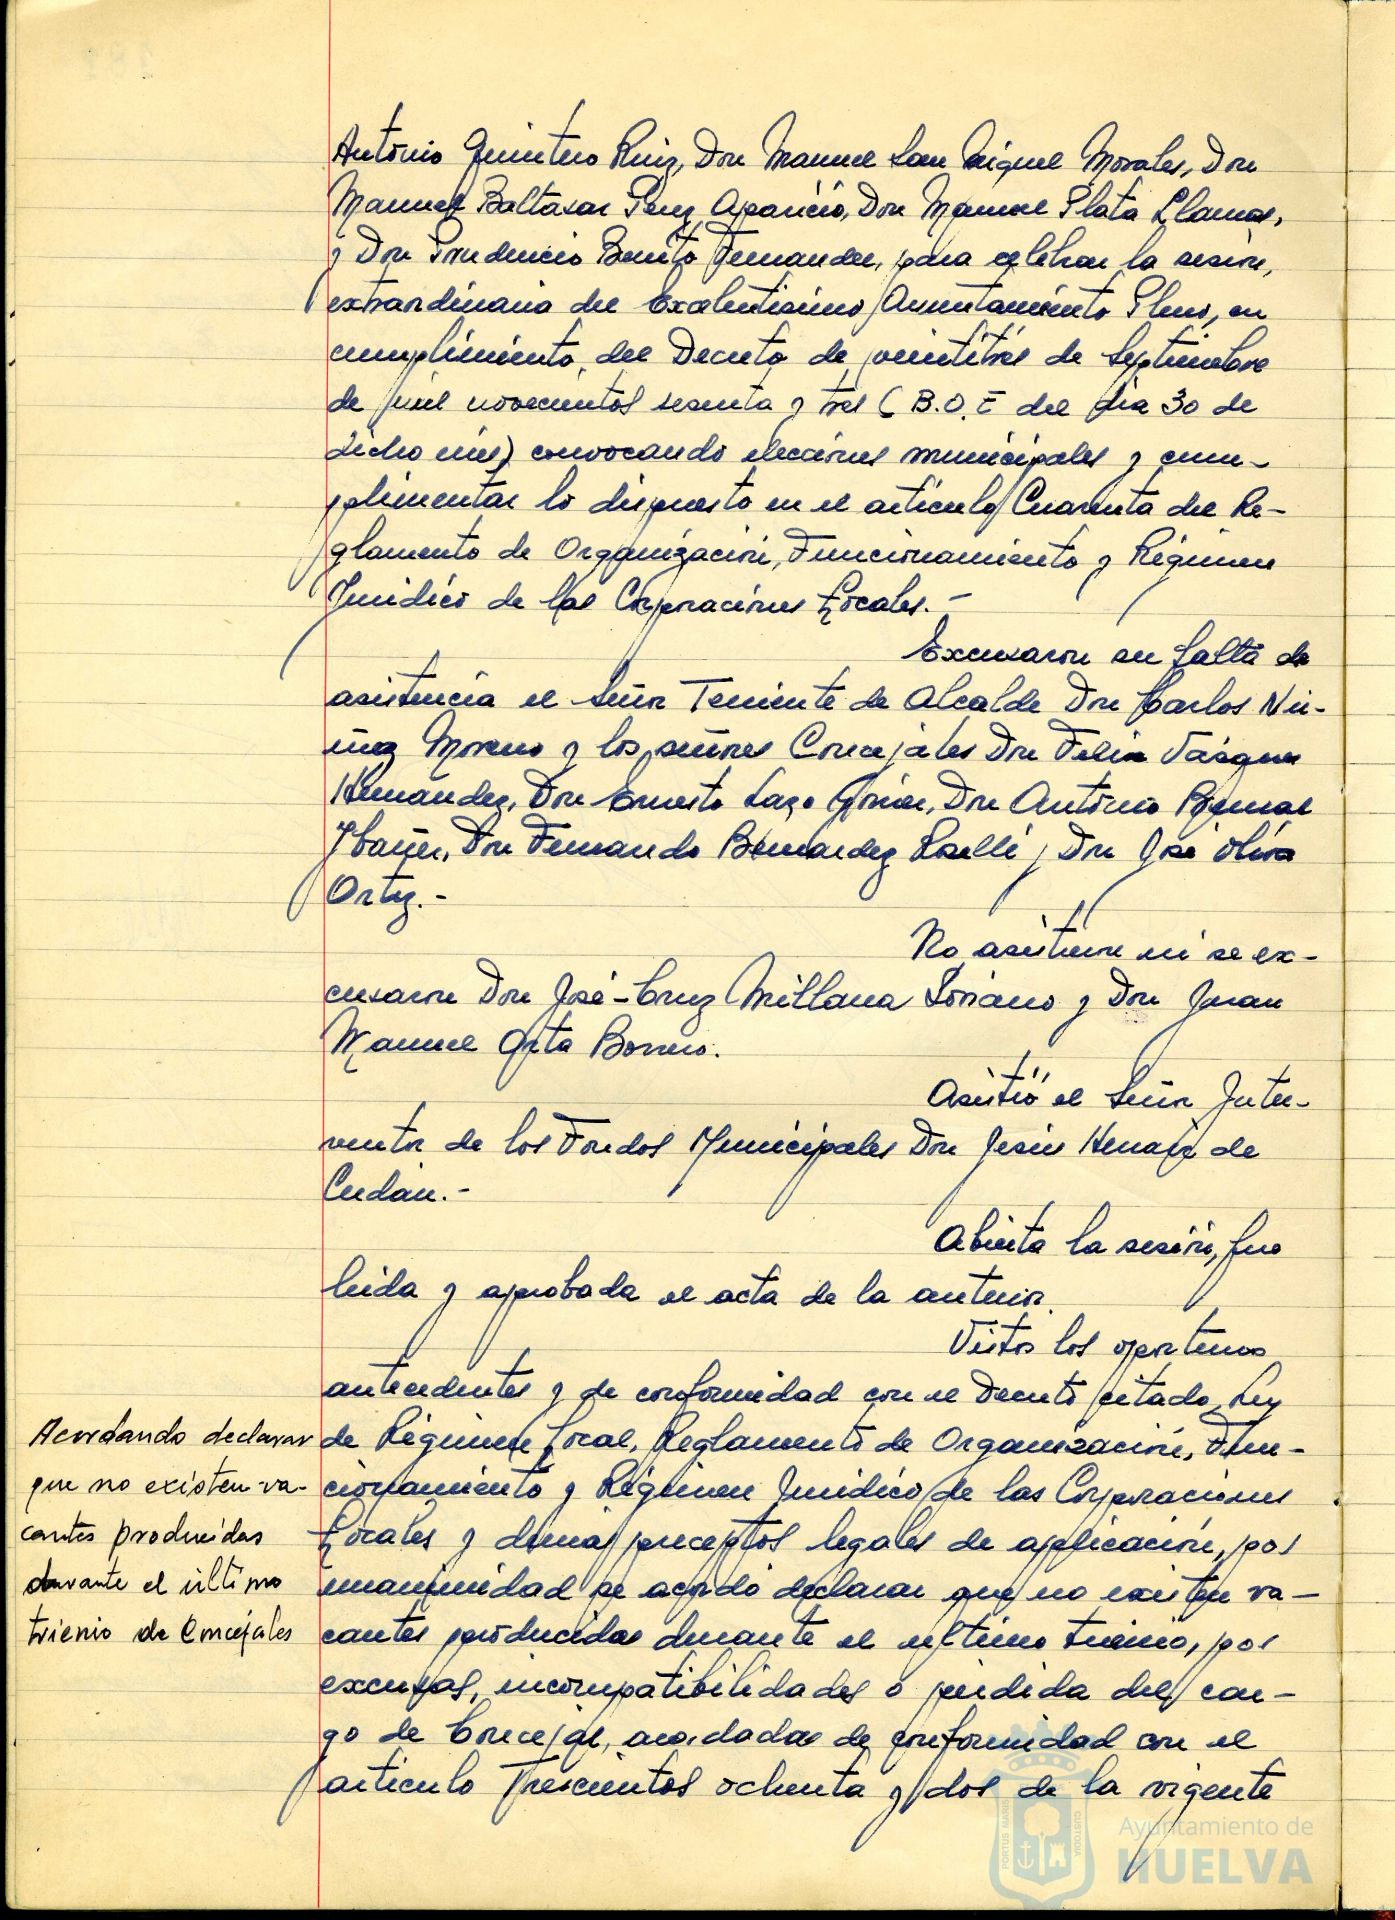 Antonio Quintero Ruiz, Don Manuel San Miguel Morales, Don
Manuel Baltasar Perez Aparicio, Don Manuel Plata Llamas,
y Don Prudencio Benito Fernandez, para celebrar la sesión,
extraordinaria del Excelentisimo Ayuntamiento Pleno, en
cumplimiento, del Decreto de veintitrés de Septiembre
de mil novecientos sesenta y tres (B.O.E del dia 30 de
dicho mes) convocando elecciones municipales y cum-
plimentar lo dispuesto en el articulo Cuarenta del Re-
glamento de Organización, Funcionamiento y Régimen
Juridico de las Corporaciones Locales.-
Excusaron su falta de
asistencia el Señor Teniente de Alcalde Don Carlos Nú-
ñez Moreno y los señores Concejales Don Felix Vázquez
Hernández, Don Ernesto Lazo Don Antonio Bernal
Ybañez, Don Fernando Bernárdez Roselli y Don José Oliva
Ortiz.-
No asistieron ni se ex-
cusaron Don José-Cruz Millana Soriano y Don Juan
Manuel Orta Borrero.
Asistió el Señor Inter-
ventor de los Fondos Municipales Don Jesús de
Cerdán.-
Abierta la sesión, fue
leida y aprobada el acta de la anterior.
Vistos los oportunos
antecedentes y de conformidad con el Decreto citado, Ley
de Régimen Local, Reglamento de Organización, Fun-
cionamiento y Régimen Juridico de las Corporaciones
Locales y demás preceptos legales de aplicación, por
unanimidad se acordó declarar que no existen va-
cantes producidas durante el ultimo trienio, por
excusas, incompatibilidades o pérdida del car-
go de Concejal, acordadas de conformidad con el
articulo Trescientos ochenta y dos de la vigente
Acordando declarar
que no existen va-
cantes producidas
durante el último
trienio de Concejales
PORTUS MARIS
CUSTODIA
Ayuntamiento de
HUELVA